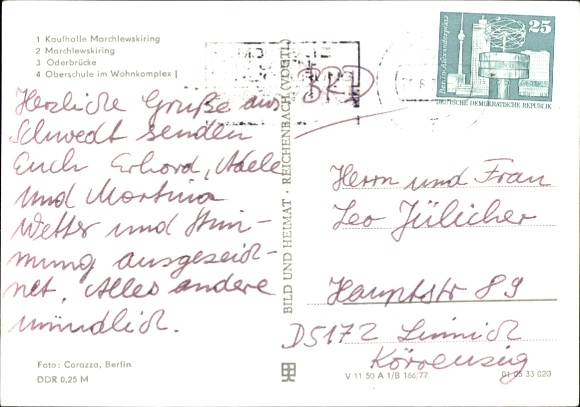 1 Kaufhalle Marchlewskiring
2 Marchlewskiring
3 Oderbrücke
4 Oberschule im Wohnkomplex I
Herzliche Grüße aus
Schwedt senden
Euch Erhard, Adele
und Martina
Wetter und Stim-
mung ausgezeich-
net. Alles andere
mündlich.
Foto: Corazza, Berlin
DDR 0,25 M
BILD UND HEIMAT · REICHENBACH (VOGTL)
BRD
25
Berlin, Alexanderplatz
DEUTSCHE DEMOKRATISCHE REPUBLIK
Herrn und Frau
Leo Jülicher
Hauptstr 89
D5172 Linnich
Körrenzig
V 11 50 A 1/B 166/77
01 05 33 020